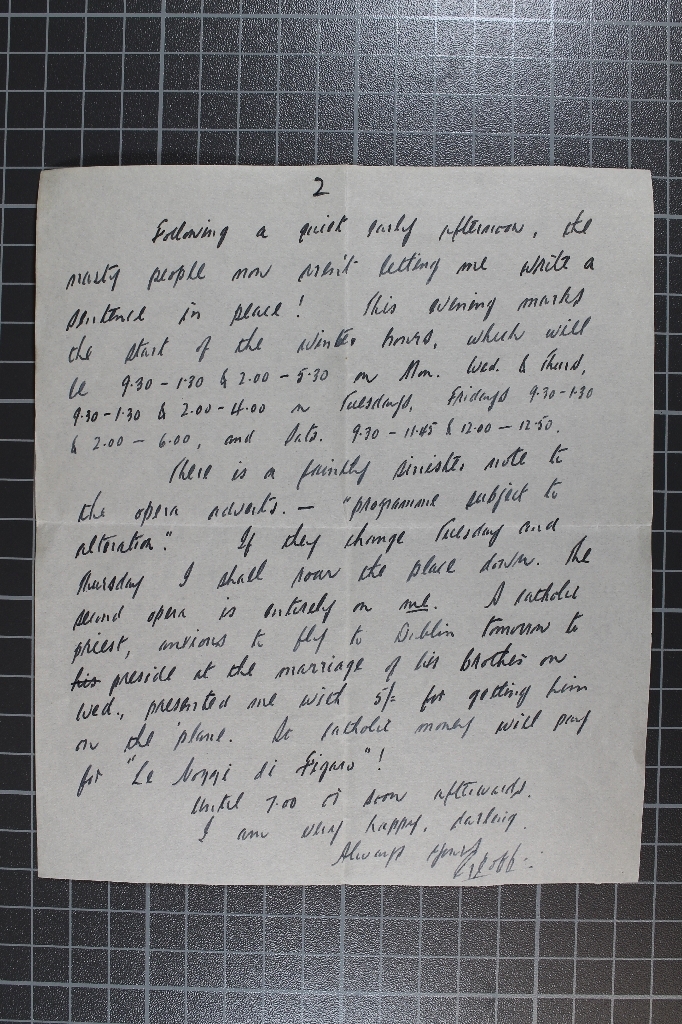 2
Following a quiet early afternoon, the
nasty people now aren't letting me write a
sentence in peace! This evening marks
the start of the winter hours, which will
be 9.30 - 1.30 & 2.00 - 5.30 on Mon. Wed. & Thurs,
9.30 - 1.30 & 2.00 - 4.00 on Tuesdays, Fridays 9.30 - 1.30
& 2.00 - 6.00, and Sats. 9.30 - 11.45 & 12.00 - 12.50.
There is a faintly sinister note to
the opera adverts. — "programme subject to
alteration." If they change Tuesday and
Thursday I shall roar the place down. The
second opera is entirely on me. A catholic
priest, anxious to fly to Dublin tomorrow to
his preside at the marriage of his brother on
Wed., presented me with 5/= for getting him
on the plane. So catholic money will pay
for "Le Nozzi di Figaro"!
Until 7.00 or soon afterwards.
I am very happy, darling.
Always yours